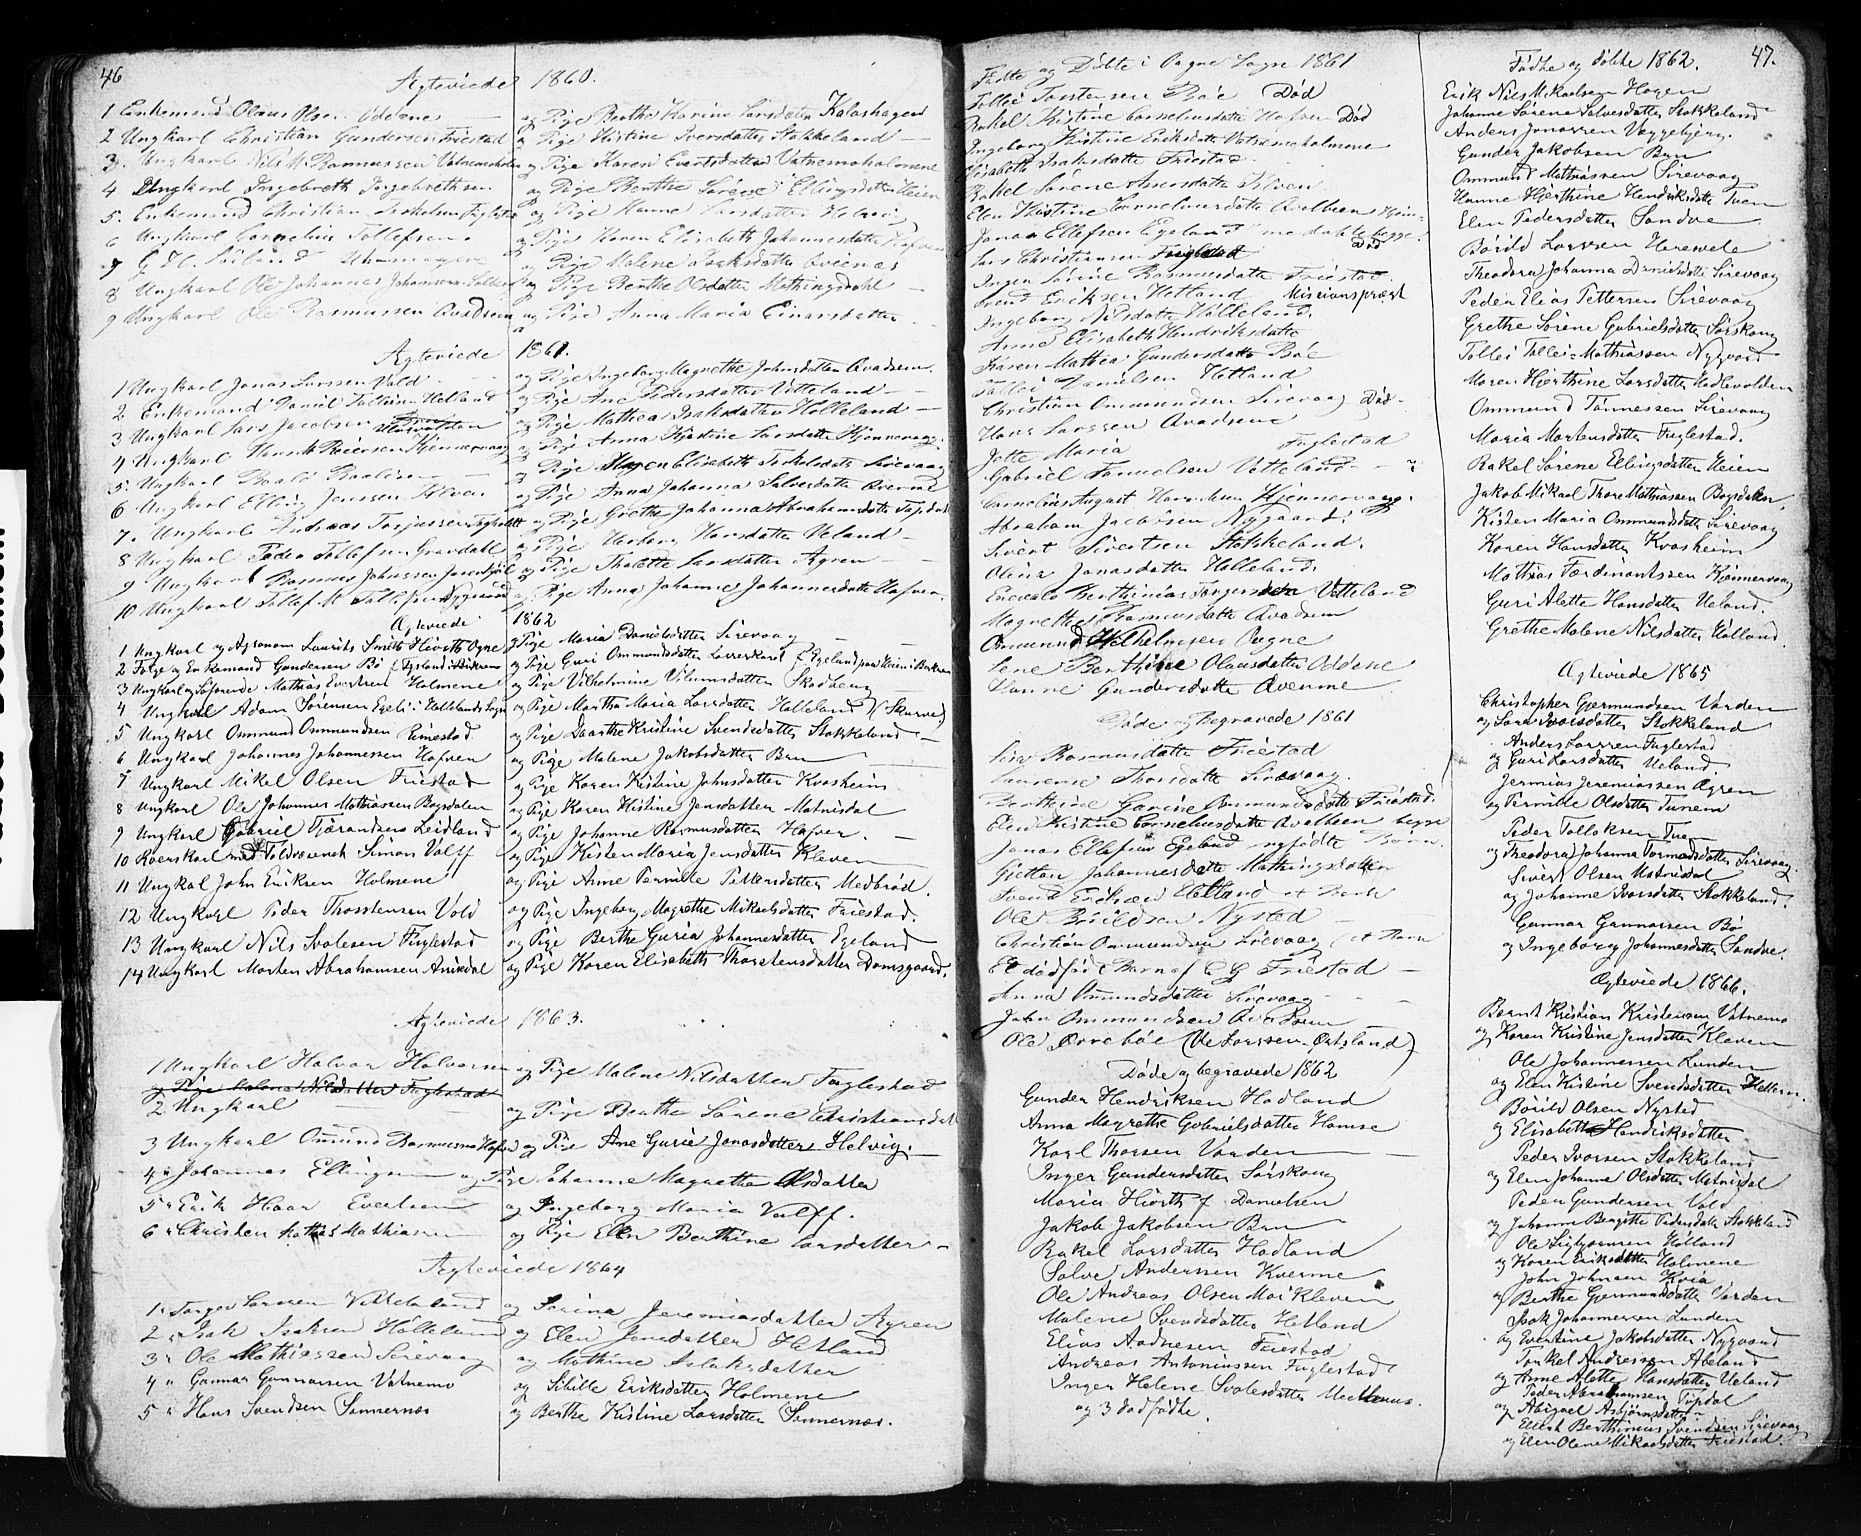 46
Ægteviede 1860.
1 Enkemand Olaus Olsen Oddene og Pige Berthe Karine Larsdatter Kalashagen
2 Ungkarl Christian Gundersen Friestad og Pige Kistine Iversdatter Stokkeland
3. Ungkarl Nils M. Rasmussen Vatnemoholmene og Pige Karen Evertsdatter Vatnemoholmene
4 Ungkarl Ingebreth Ingebrethsen og Pige Berthe Sørene Ellingsdatter Heien
5. Enkemand Christian Fuglestad og Pige Hanne Larsdatter
6 Ungkarl Cornelius Tollefsen og Pige Karen Elisabeth Johannesdatter Hafven
7 G. H. og Pige Malene Isaksdatter
8 Ungkarl Ole Johannes Johansen og Pige Berthe Olsdatter Mathingsdahl
9 Ungkarl Ole Rasmussen Avadsem og Pige Anna Maria Einarsdatter
Ægteviede 1861.
1 Ungkarl Jonas Larssen Vold og Pige Ingeborg Magrethe Johnsdatter Qvadsem.
2 Enkemand Daniel Helland og Pige Ane Pedersdatter Vetteland
3 Ungkarl Lars Jacobsen og Pige Mathea Isaksdatter Holleland
4 Ungkarl Hans M. Reiersen Kjennervaag og Pige Anna Kjistine Larsdatter Kjennevaag.
5. Ungkarl og Pige Elisabeth Torkelsdatter Sirevaag
6 Ungkarl Elling Jenssen Kleven og Pige Anna Johanna Salvesdatter Qverme
7. Ungkarl Andreas og Pige Grethe Johanna Abrahamsdatter
8 Ungkarl Peder Tollefsen Gravdahl og Pige Hansdatter Veland
9 Ungkarl Rasmus Johnssen og Pige Thalette Larsdatter Ågren
10 Ungkarl Tollef M. Tollefsen Nygaard og Pige Anna Johanne Johannesdatter Hafven
Ægteviede 1862
1 Ungkarl og Agronom Laurits Smith Hiorth Ogne og Pige Maria Danielsdatter Sirevaag
2 Enkemand Gundersen Bø og Pige Guri Ommundsdatter
3 Ungkarl og Søfarende Mathias Evertsen Holmene og Pige Vilhelmine Skadberg
4 Ungkarl Adam Sørensen Egeli i Hellelands Sogn og Pige Martha Maria Larsdatter Helleland (Skarvei)
5 Ungkarl Ommund Ommundsen Rimestad og Pige Daarthe Kristine Svendsdatter Stokkeland
6 Ungkarl Johannes Johannessen Hafven og Pige Malene Jakobsdatter Bru
7 Ungkarl Mikel Olsen Friestad og Pige Karen Kistine Johnsdatter Kvasheim
8 Ungkarl Ole Johannes Mathiassen Bogdalen og Pige Karen Kistine Jensdatter Matnisdal
9 Ungkarl Gabriel Tjærandsen Leidland og Pige Johanne Rasmusdatter Hafven.
10 Roerskarl ved Toldvæsenet Simon Valff og Pige Kisten Maria Jensdatter Kleven
11 Ungkal John Eriksen Holmene og Pige Anne Pernille Pettersdatter Medbrød.
12 Ungkarl Peder Thorstensen Vold og Pige Ingeborg Magrethe Mikaelsdatter Friestad.
13 Ungkarl Nils Svalesen Fuglestad og Pige Berthe Guria Johannesdatter Egeland
14 Ungkarl Morten Abrahamsen Aniksdal og Pige Karen Elisabeth Thorstensdatter Domsgaard.
Ægteviede 1863.
1 Ungkarl Halvar Halvorsen og Pige Malene Nilsdatter Fuglestad
og Pige Malene Nilsdatter Fuglestad
2 Ungkarl og Pige Berthe Sørene Christiansdat
3 Ungkarl Omund Rasmussen Hafven og Pige Ane Gurie Jonasdatter Helvig.
4 " Johannes Ellingsen og Pige Johanne Magrethe Olsdatter
5 " Erik Haar Evertsen og Ingeborg Maria Valff.
6 " Christen Mathias Mathiassen og Pige Elen Berthine Larsdatter
Ægteviede 1864
1 " Torger Larssen Vetteland og Serina Jeremiasdatter Ågren
2 " Isak Isaksen Hølleland og Elen Jensdatter Hetland
3 " Ole Mathiassen Sirevaag og Mathine Aslaksdatter
4 " Gunnar Gunnarsen Vatnemo og Sibille Eriksdatter Holmene
5 " Hans Svendsen Sannernes og Berthe Kistine Larsdatter Sannernes.
Fødte og Døbte i Oogne Sogn 1861
Tollei Torstensen Bøe Død
Rakel Kistine Corneliusdatte Hafven Død
Ingeborg Kistine Eriksdatte Vatnemoholmene
Elisabeth Isaksdatte Friestad
Rakel Sørene Kleven
Elen Kistine Corneliusdatte
Jonas Ellefsen Egeland
Lars Christiansen Fuglestad Død
Inger Sørine Rasmusdatte Friestad
Svend Eriksen Hetland Misionsprest
Ingeborg Nilsdatte Hølleland.
Anne Elisabeth Hendriksdatte
Karen Mathea Gundersdatte Bøe
Tollei Danielsen Hetland
Christian Ommundsen Sirevaag Død
Hans Larssen Qvadsem
Jette Maria Fuglestad
Gabriel Vetteland
Cornelius August Kjennervaag.
Abraham Jacobsen Nygaard
Sivert Sivertsen Stokkeland.
Olina Jonasdatte Helleland.
Berthinias Torgersen Vetteland
Magrethe Rasmusdatte Qvadsem
Ommund Vilhelmsen Oogne
Lene Berthine Olausdatte Oddene
Hanne Gundersdatte Qverme
Døde og Begravede 1861
Rasmusdatte Friestad
Thorsdatte Sirevaag.
Berthine Ommundsdatte Friestad.
Elen Kistine Corneliusdatte begge
Jonas Ellefsen Egeland nyfødte Børn.
Johannesdatte
Svend Eriksen Hetland et Barn
Ole Bårildsen Nystad
Christian Ommundsen Sirevaag (et Barn
Et dødfødt Barn af Friestad
Anna Omundsdatter Sirevaag
John Ommundsen
Ole (Ole Larssen
Døde og begravede 1862
Gunder Hendriksen Hadland
Anna Magrethe Gabrielsdatter Hamse
Karl Thorsen Varden
Inger Gundersdatter Sørskoug
Maria Hiorth f. Danielsen
Jakob Jakobsen Bru
Rakel Larsdatter Hadland
Salve Anderssen Kverme
Ole Andreas Olsen Moi Kleven
Malene Svendsdatter Hetland
Elias Aadnesen Friestad
Andreas Antoniussen Fuglestad
Inger Helene Svalesdatter
og 3 dødfødte.
Fødte og døbte 1862. 47.
Erik Nils Mikaelsen Hagen
Johanne Sørene Salvesdatter Stokkeland
Anders Jonassen Veggebjerg.
Gunder Jakobsen Bru
Ommund Mathiassen Sirevaag
Hanne Hjerthine Hendriksdatte Tuen
Elen Pedersdatter Sandve
Bårild Larssen Herevele
Theodora Johanna Danielsdatte Sirevaag
Peder Elias Pettersen Sirevaag
Grethe Sørene Gabrielsdatter Sørskoug
Tollei Tollei-Mathiassen Nygaard
Maren Hjerthine Larsdatter
Ommund Tønnessen Sirevaag
Maria Mortensdatter Fuglestad.
Rakel Sørene Ellingsdatter Heien
Jakob Mikael Thore Mathiassen Bogdalen.
Kisten Maria Ommundsdatte Sirevaag
Karen Hansdatter Kvasheim
Mathias Ferdinantssen Kjennervaag
Guri Alette Hansdatter Ueland.
Grethe Malene Nilsdatter Hølland
Ægteviede 1865
Christopher Gjermundsen Varden
og Sara Ivarsdatter Stokkeland
Anders Larssen Fuglestad
og Guri Larsdatter Ueland.
Jermias Jeremiassen Ågren
og Pernille Olsdatter Tunem
Peder Tollaksen Tuen
og Theodora Johanna Tormodsdatter Sirevaag.
Sivert Olsen Matnisdal
og Johanne Ivarsdatter Stokkeland.
Gunnar Gunnarsen Bø
og Ingeborg Johannesdatter Sandve.
Ægteviede 1866.
Bernt Kristian Kristensen Vatnemo
og Karen Kristine Jensdatter Kleven
Ole Johannessen Lunden
og Elen Kistine Svendsdatter
Bårild Olsen Nystad
og Elisabeth Hendriksdatter
Peder Ivarsen Stokkeland
og Elen Johanne Olsdatter Matnisdal
Peder Gundersen Vold
og Johanne Bergitte Pedersdatte Stokkeland
Ole Sigbjørnsen Hølland
og Karen Eriksdatter Holmene
John Johnsen Kvia
og Berthe Gjermundsdatter Varden
Isak Johannessen Lunden
og Evertine Jakobsdatter Nygaard
Torkel Andreasen Abeland
og Anne Alette Hansdatter Ueland
Peder Abrahamsen Tupdal
og Abigael Asbjørnsdatter
Elert Berthinius Svendsen Sirevaag
og Elen Olene Mikaelsdatter Friestad.